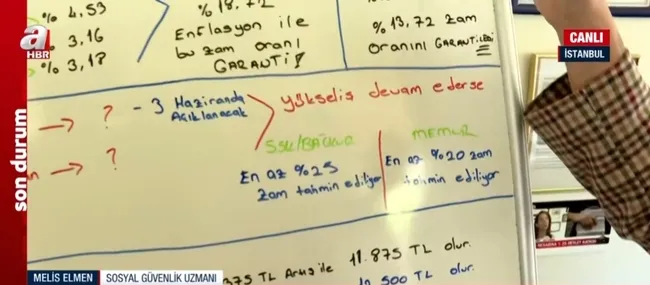 a
HBR
son durum
CANLI
İSTANBUL
% 4,53
% 3,16
% 3,18
Enflasyon ile
bu zam oranı
GARANTİ!
% 13,72 zam
oranını GARANTİLEDİ
→ ? - 3 Haziranda
Açıklanacak
→ ?
yükseliş devam ederse
SSK/BAĞKUR
En az %25
zam tahmin ediliyor
MEMUR
En az %20 zam
tahmin ediliyor
375 TL Artış ile 11.875 TL olur.
500 TL olur.
MELİS ELMEN
SOSYAL GÜVENLİK UZMANI